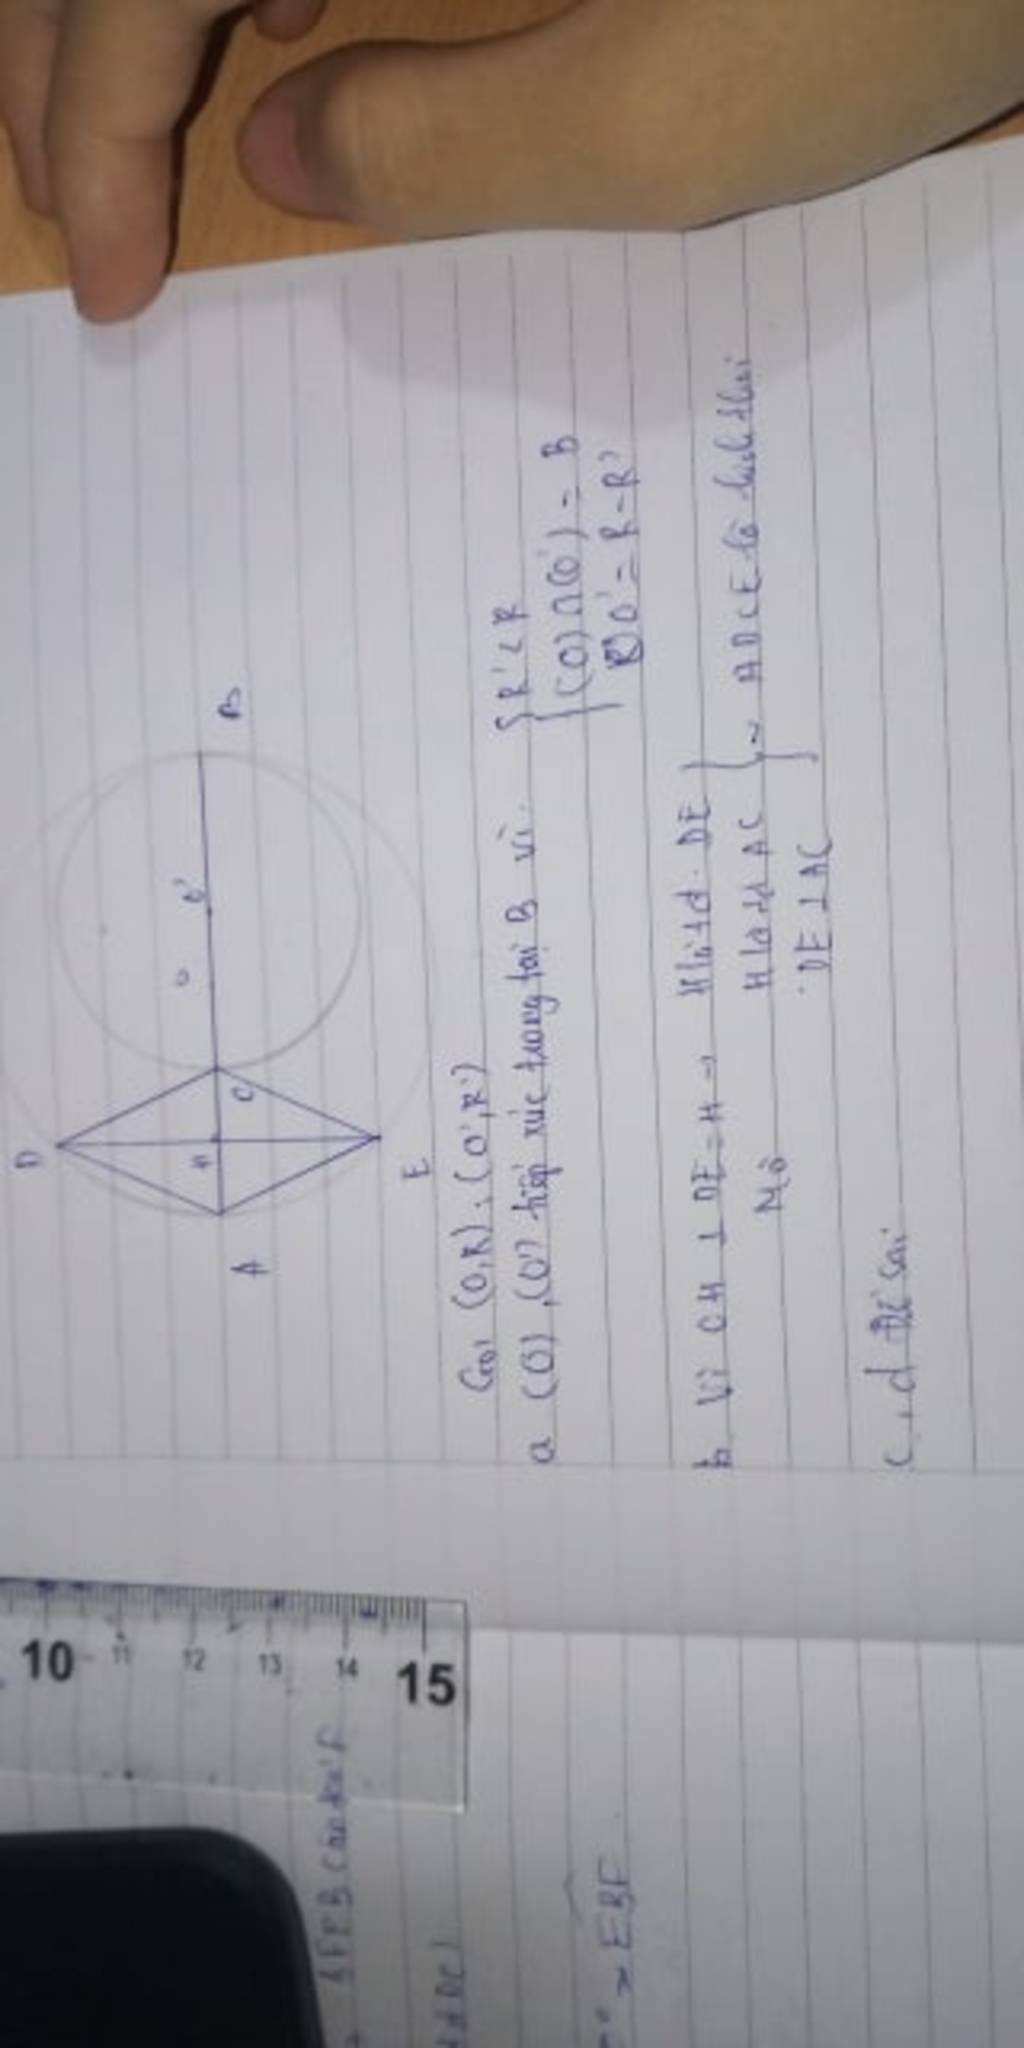 D
A H C O O' B
E
Gọi (O,R); (O',R')
a (O), (O') tiếp xúc trong tại B vì. { R' < R
(O) ∩ (O') = B
OO' = R - R'
b Vì OH ⊥ DE = H → H là td DE
Mà H là td AC } → ADCE là hình thoi
DE ⊥ AC
c, d Đề sai
10 11 12 13 14 15
cân tại F
EBF